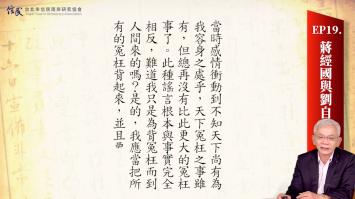 台北市信民兩岸研究協會
EP19.
蔣經國與劉自
當時感情衝動到不知天下尚有為
我容身之處乎，天下冤枉之事雖
有，但總再沒有比此更大的冤枉
事了。此種謠言根本與事實完全
相反，難道我只是為背冤枉而到
人間來的嗎？是的，我應當把所
有的冤枉背起來，並且